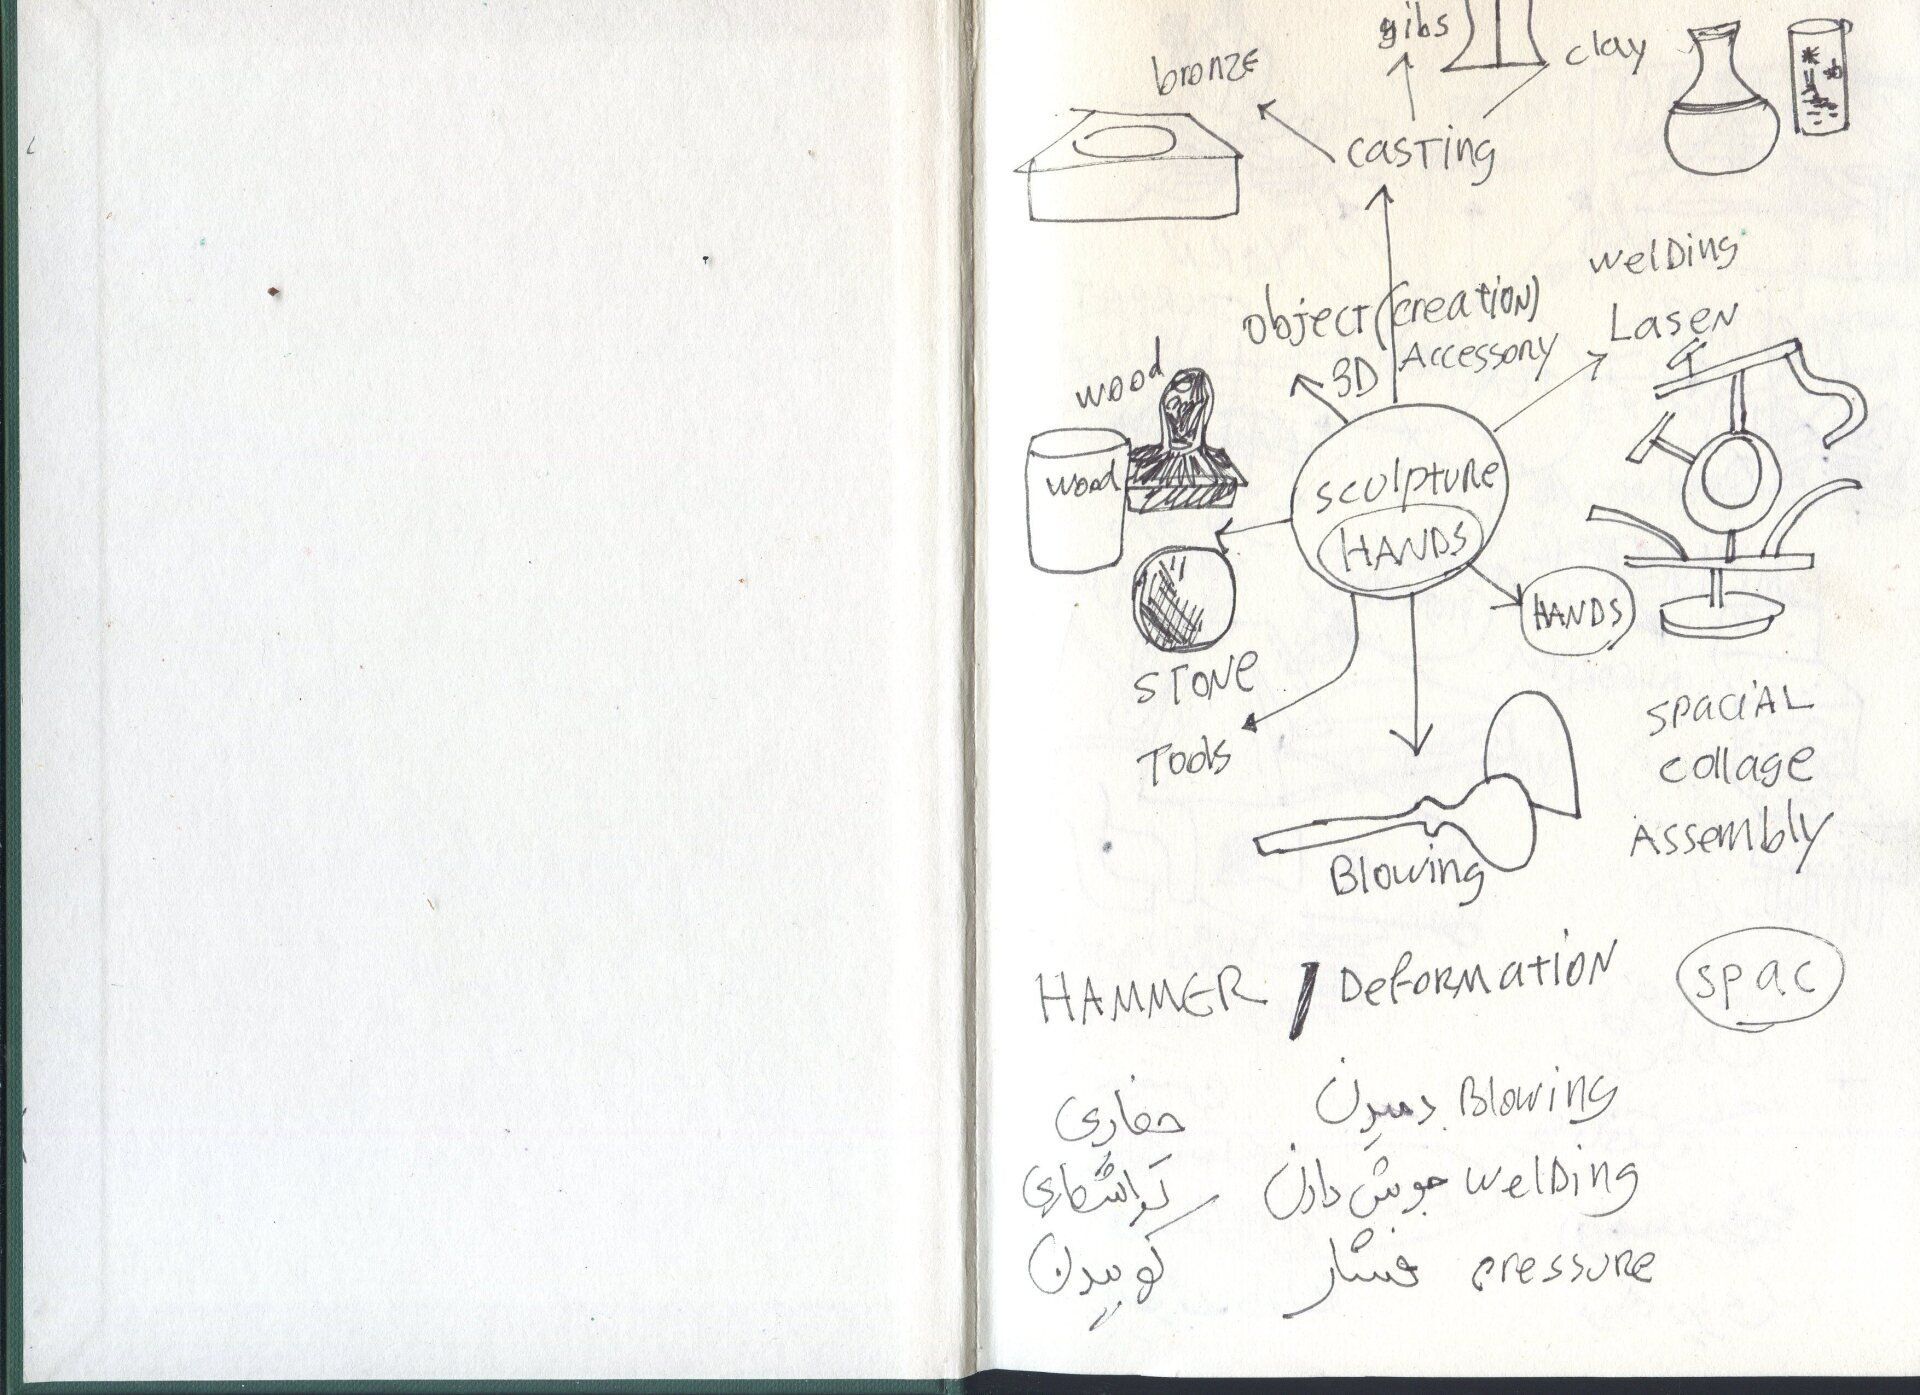 gibs
clay
bronze
casting
welding
object (creation)
Lasen
3D Accessory
wood
wood
sculpture
HANDS
HANDS
STONE
Tools
SPACIAL
collage
Assembly
Blowing
HAMMER / Deformation
spac
حفاری
دمیدن Blowing
تراشکاری
جوش دادن welding
کوبیدن
فشار pressure